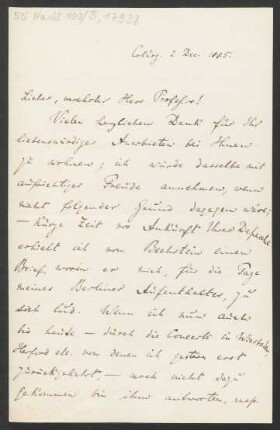 55 Nachl 103/B, 17938
Coburg. 2 Dec. 1885.
Lieber, verehrter Herr Professor!
Vielen herzlichen Dank für Ihr
liebenswürdiges Anerbieten bei Ihnen
zu wohnen; ich würde dasselbe mit
aufrichtiger Freude annehmen, wenn
nicht folgender Grund dagegen wäre;
– kurze Zeit vor Ankunft Ihrer Depesche
erhielt ich von Bechstein einen
Brief, worin er mich, für die Tage
meines Berliner Aufenthaltes, zu
sich lud. Wenn ich nun auch
bis heute – durch die Concerte in Wiesbaden,
Herford etc. von denen ich gestern erst
zurückgekehrt – noch nicht dazu
gekommen bin ihm antworten, resp.